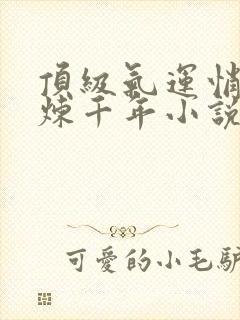 頂級氣運悄
煉千年小說
可愛的小毛驢